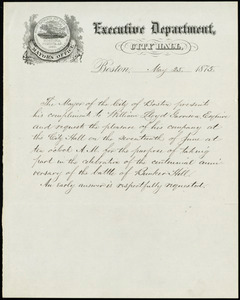 MAYOR'S OFFICE
Executive Department,
CITY HALL,
Boston, May 25, 1875.
The Mayor of the City of Boston presents
his compliments to William Lloyd Garrison Esquire
and requests the pleasure of his company at
the City Hall on the seventeenth of June at
ten o'clock A.M. for the purpose of taking
part in the celebration of the centennial anni-
versary of the battle of Bunker Hill.
An early answer is respectfully requested.